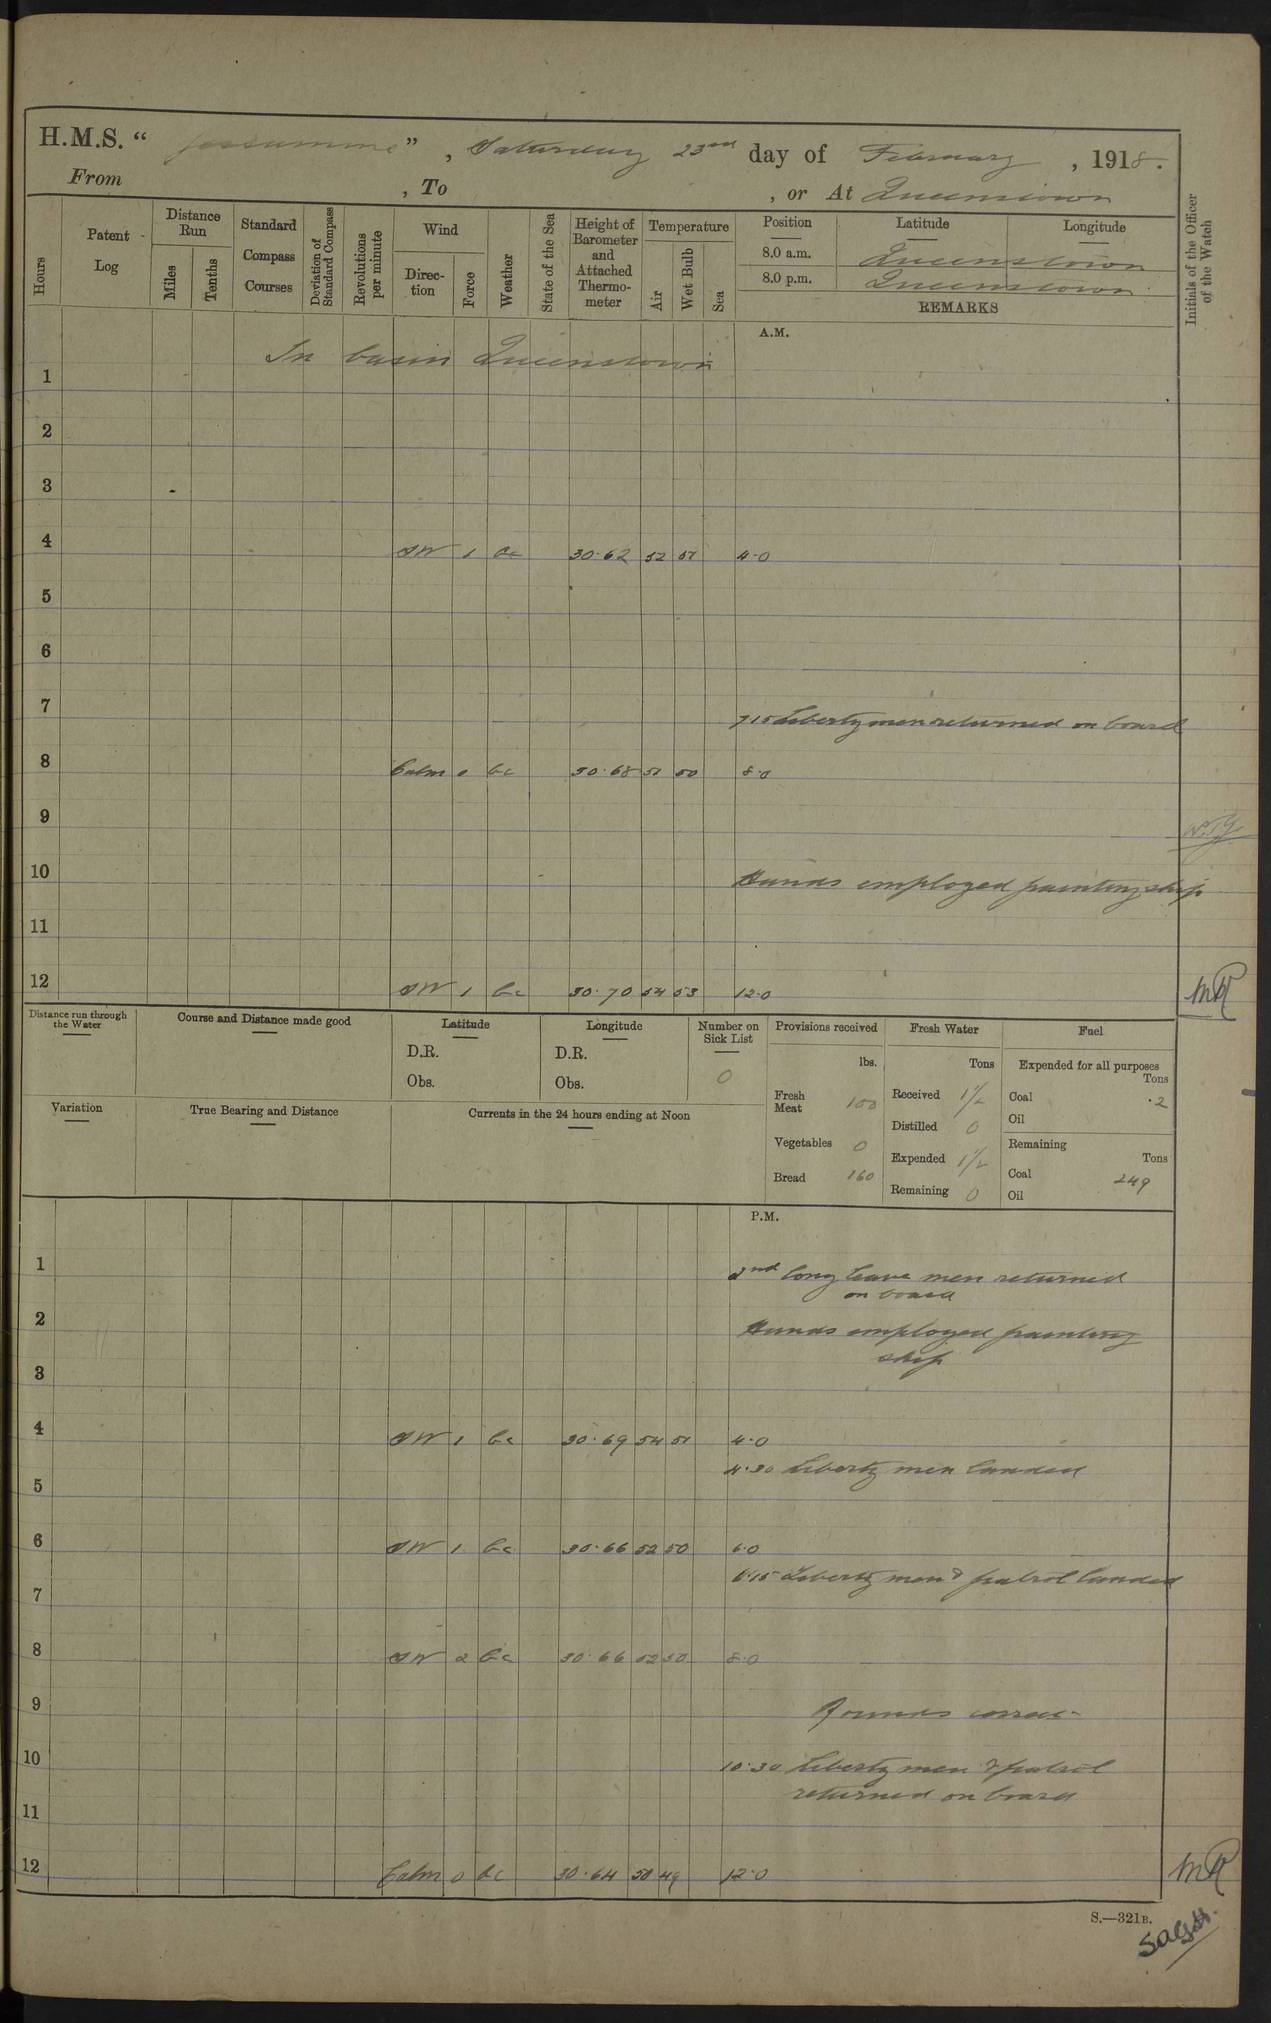 H.M.S. “ Jessamine ” , Saturday 23rd day of February , 1918.
From , To , or At Queenstown
Hours
Patent Log
Distance Run
Miles
Tenths
Standard Compass Courses
Deviation of Standard Compass
Revolutions per minute
Wind
Direc-tion
Force
Weather
State of the Sea
Height of Barometer and Attached Thermo-meter
Temperature
Air
Wet Bulb
Sea
Position Latitude Longitude
8.0 a.m. Queenstown
8.0 p.m. Queenstown
REMARKS
Initials of the Officer of the Watch
A.M.
In basin Queenstown
1
2
3
4 SW 1 bc 30.62 52 51 4.0
5
6
7
7.15 Liberty men returned on board
8 Calm 0 bc 30.68 51 50 8.0
9
10
Hands employed painting ship
11
12 SW 1 bc 30.70 54 53 12.0 MR
Distance run through the Water
Course and Distance made good
Latitude
D.R.
Obs.
Longitude
D.R.
Obs.
Number on Sick List
0
Provisions received
lbs.
Fresh Meat 100
Vegetables 0
Bread 160
Fresh Water
Tons
Received 1½
Distilled 0
Expended 1½
Remaining 0
Fuel
Expended for all purposes
Tons
Coal .2
Oil
Remaining
Tons
Coal 249
Oil
Variation
True Bearing and Distance
Currents in the 24 hours ending at Noon
P.M.
1
2nd long leave men returned
on board
2
Hands employed painting
ship
3
4 SW 1 bc 30.69 54 51 4.0
4.30 Liberty men landed
5
6 SW 1 bc 30.66 52 50 6.0
6.15 Liberty men & patrol landed
7
8 SW 2 bc 30.66 52 50 8.0
9
Rounds correct
10
10.30 Liberty men & patrol
returned on board
11
12 Calm 0 bc 30.64 50 49 12.0 MR
S.—321B.